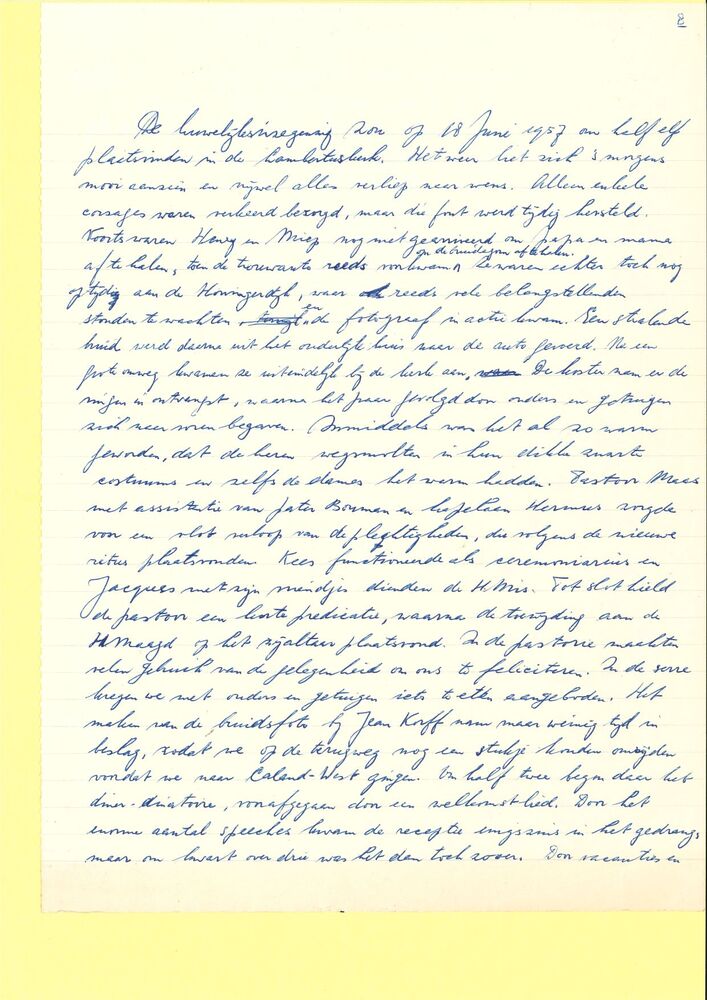 8
De huwelijksinzegening zou op 18 Juni 1957 om half elf
plaatsvinden in de Lambertuskerk. Het weer liet zich 's morgens
mooi aanzien en vrijwel alles verliep naar wens. Alleen enkele
corsages waren verkeerd bezorgd, maar die fout werd tijdig hersteld.
Voorts waren Henny en Miep nog niet gearriveerd om papa en mama
op de bruidegom af te halen.
af te halen, toen de trouwauto reeds voorkwam. Ze waren echter toch nog
op tijdig aan de Honingerdijk, waar reeds vele belangstellenden
stonden te wachten en de fotograaf in actie kwam. Een stralende
bruid werd daarna uit het ouderlijk huis naar de auto gevoerd. Na een
grote omweg kwamen ze uiteindelijk bij de kerk aan, De koster nam er de
ringen in ontvangst, waarna het paar gevolgd door ouders en getuigen
zich naar voren begaven. Inmiddels was het al zo warm
geworden, dat de heren wegsmolten in hun dikke zwarte
costuums en zelfs de dames het warm hadden. Pastoor Maas
met assistentie van pater Bouman en kapelaan Hermus zorgde
voor een vlot verloop van de plechtigheden, die volgens de nieuwe
ritus plaatsvonden. Kees functioneerde als ceremoniarius en
Jacques met zijn vriendjes dienden de H. Mis. Tot slot hield
de pastoor een korte predicatie, waarna de toewijding aan de
H. Maagd op het zijaltaar plaatsvond. In de pastorie maakten
velen gebruik van de gelegenheid om ons te feliciteren. In de serre
kregen we met ouders en getuigen iets te eten aangeboden. Het
maken van de bruidsfoto bij Jean Korff nam maar weinig tijd in
beslag, zodat we op de terugweg nog een stukje konden omrijden
voordat we naar Caland-West gingen. Om half twee begon daar het
diner-dinatoire, voorafgegaan door een welkomstlied. Door het
enorme aantal speeches kwam de receptie enigszins in het gedrang,
maar om kwart over drie was het dan toch zover. Door vacanties en